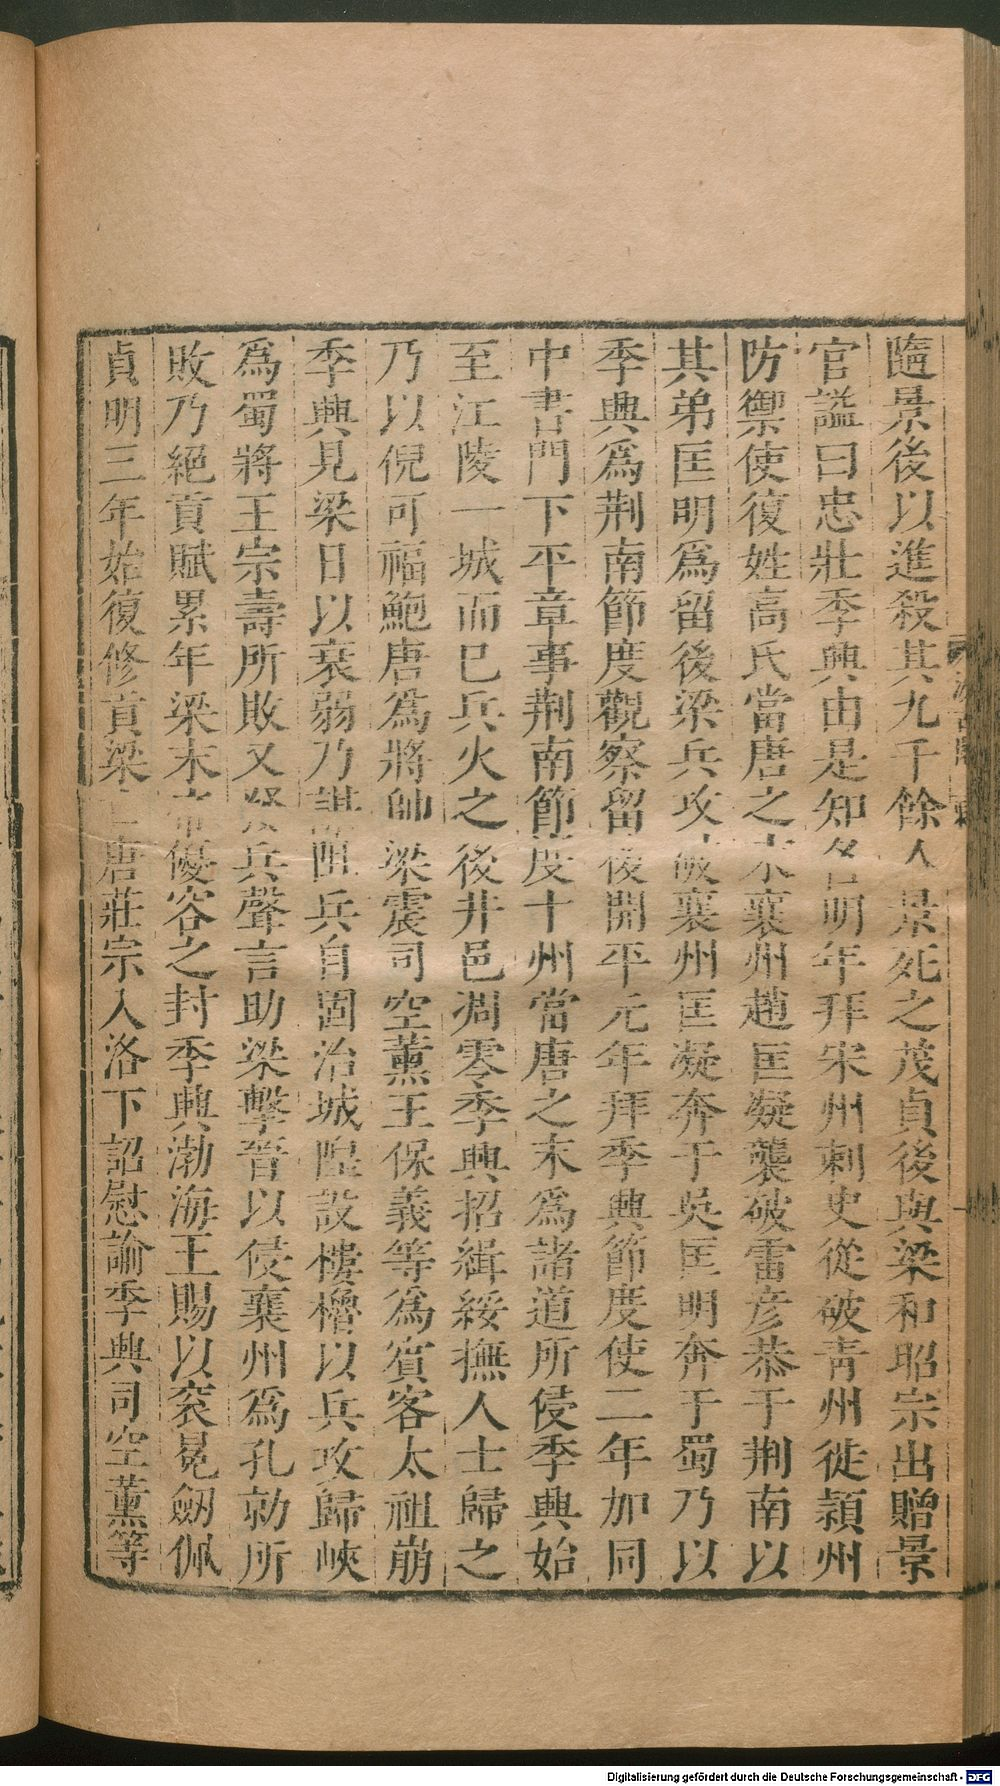 隨景後以進殺其九千餘人景死之茂貞後與梁和昭宗出贈景
官諡曰忠壯季興由是知名明年拜宋州刺史從破青州徙潁州
防禦使復姓高氏當唐之末襄州趙匡凝襲破雷彦恭于荆南以
其弟匡明爲留後梁兵攻破襄州匡凝奔于吳匡明奔于蜀乃以
季興爲荆南節度觀察留後開平元年拜季興節度使二年加同
中書門下平章事荆南節度十州當唐之末爲諸道所侵季興始
至江陵一城而已兵火之後井邑凋零季興招緝綏撫人士歸之
乃以倪可福鮑唐爲將帥梁震司空薰王保義等爲賓客太祖崩
季興見梁日以衰弱乃謀阻兵自固治城隍設樓櫓以兵攻歸峽
爲蜀將王宗壽所敗又發兵聲言助梁擊晉以侵襄州爲孔勍所
敗乃絕貢賦累年梁末帝優容之封季興渤海王賜以袞冕劒佩
貞明三年始復修貢梁亡唐莊宗入洛下詔慰諭季興司空薰等
Digitalisierung gefördert durch die Deutsche Forschungsgemeinschaft - DFG